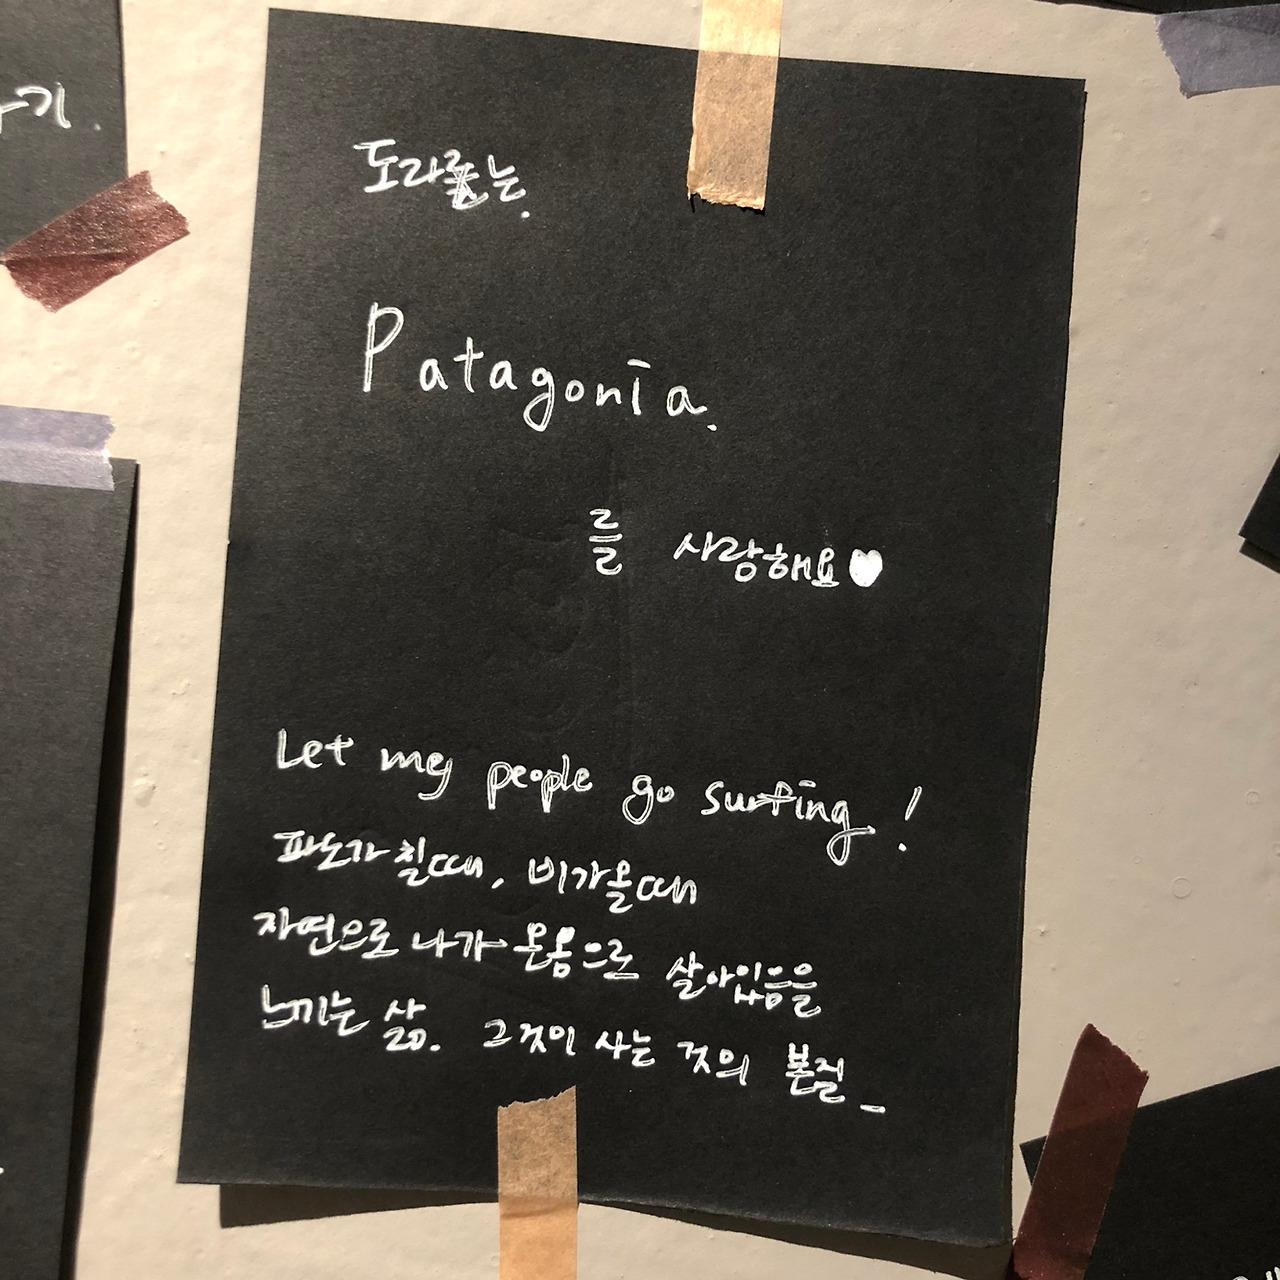 도라르는.
Patagonia.
를 사랑해요♥
Let my people go surfing !
파도가 칠때, 비가올때
자연으로 나가 온몸으로 살아있음을
느끼는 삶. 그것이 사는 것의 본질_